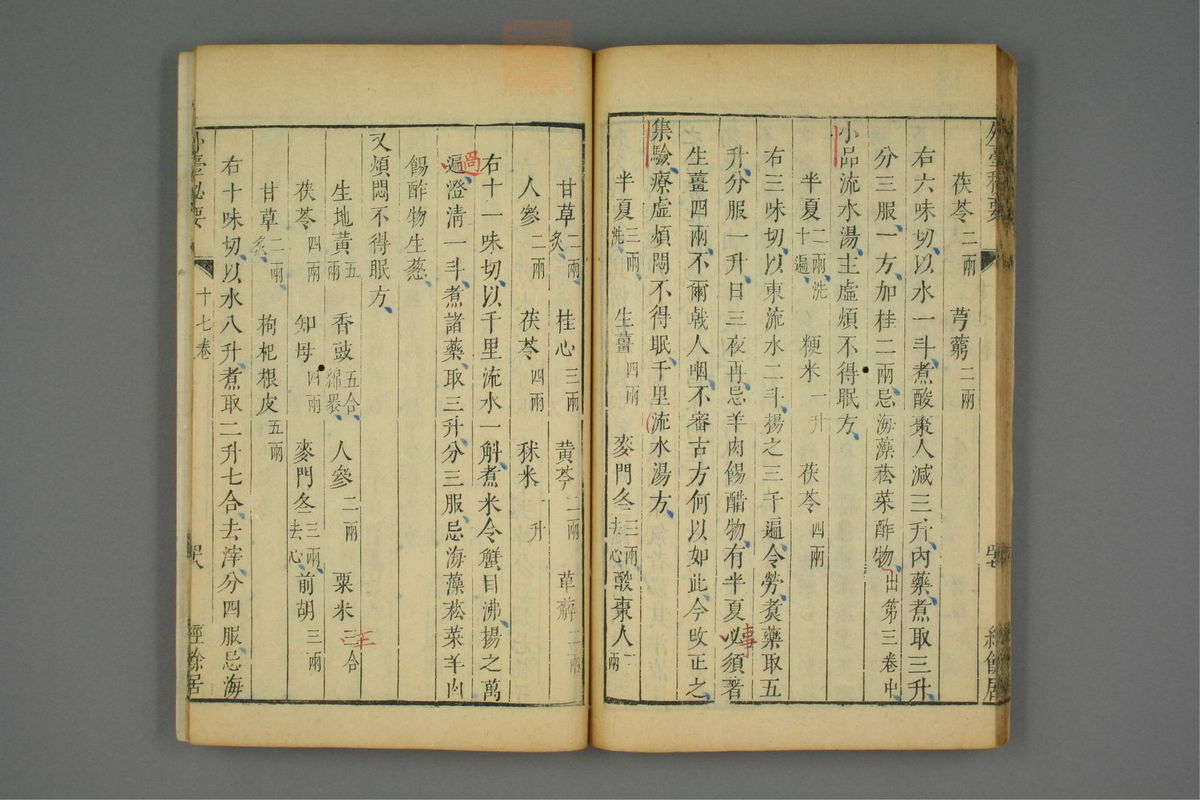 茯苓二兩 芎藭二兩
右六味切以水一斗煮酸棗人減三升內藥煮取三升
分三服一方加桂二兩忌海藻菘菜酢物出第三卷中
小品流水湯主虛煩不得眠方
半夏二兩洗十遍 粳米一升 茯苓四兩
右三味切以東流水二斗揚之三千遍令勞煑藥取五
升分服一升日三夜再忌羊肉餳醋物有半夏必須著
事
生薑四兩不爾戟人咽不審古方何以如此今改正之
集驗療虛煩悶不得眠千里流水湯方
半夏三兩洗 生薑四兩 麥門冬三兩去心 酸棗人二兩
甘草二兩炙 桂心三兩 黃芩二兩 萆薢二兩
人參二兩 茯苓四兩 秫米一升
右十一味切以千里流水一斛煮米令蟹目沸揚之萬
過
遍澄清一斗煮諸藥取三升分三服忌海藻菘菜羊肉
餳酢物生葱
又煩悶不得眠方
生地黃五兩 香豉五合綿裹 人參二兩 粟米三合
茯苓四兩 知母四兩 麥門冬三兩去心 前胡三兩
甘草二兩炙 枸杞根皮五兩
右十味切以水八升煮取二升七合去滓分四服忌海
外臺秘要 十七卷 經餘居